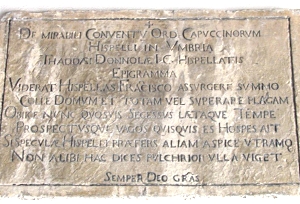 DE MIRABILI CONVENTV ORD. CAPVCCINORVM
HISPELLI IN VMBRIA
THADDÆI DONNOLÆ I·C· HISPELLATIS
EPIGRAMMA
VIDERAT HISPELLAS FRACISCO ASSVRGERE SVMMO
COLLE DOMVM ET TOTAM VEL SVPERARE PLAGAM
NVNC QVOSVIS SECESSVS LÆTAQVE TEMPE
PROSPECTVSQVE VAGOS QVISQVIS ES HOSPES AIT
SI SPECVLÆ HISPELLI PRÆFERS ALIAM ASPICE VTRAMQ
NON ALIBI HAC DICES PVLCHRIOR VLLA VIGET
SEMPER DEO GRÃS